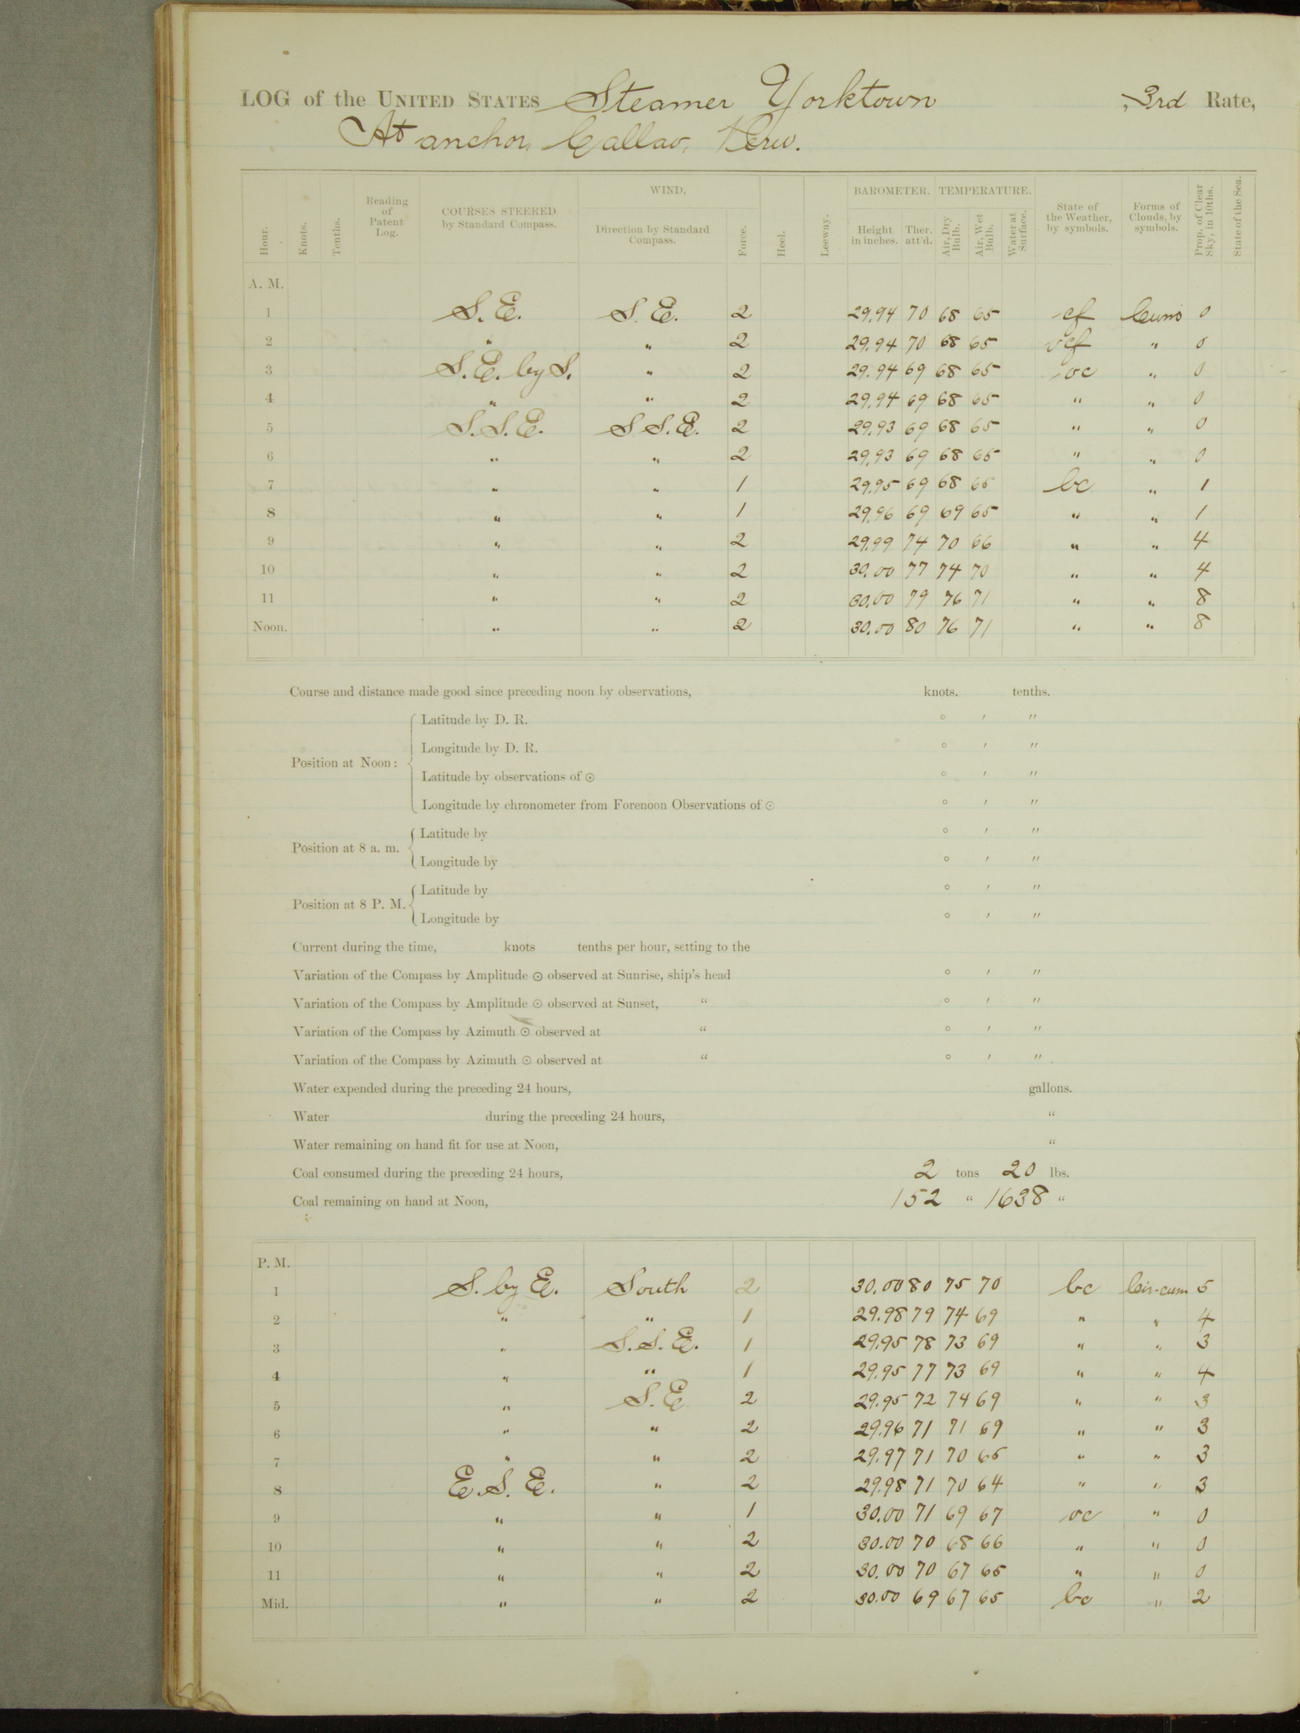 LOG of the UNITED STATES Steamer Yorktown, 3rd Rate,
At anchor, Callao, Peru.
Hour. Knots. Tenths. Reading of Patent Log. COURSES STEERED by Standard Compass. WIND. Direction by Standard Compass. Force. Heel. Leeway. BAROMETER. Height in inches. Ther. att'd. TEMPERATURE. Air, Dry Bulb. Air, Wet Bulb. Water at Surface. State of the Weather, by symbols. Forms of Clouds, by symbols. Prop. of Clear Sky, in 10ths. State of the Sea.
A. M.
1 S.E. S.E. 2 29.94 70 68 65 cf 0
2 " " 2 29.94 70 68 65 ocf " 0
3 S.E. by S. " 2 29.94 69 68 65 oc " 0
4 " " 2 29.94 69 68 65 " " 0
5 S.S.E. S S.E. 2 29.93 69 68 65 " " 0
6 " " 2 29.93 69 68 65 " " 0
7 " " 1 29.95 69 68 65 bc " 1
8 " " 1 29.96 69 69 65 " " 1
9 " " 2 29.99 74 70 66 " " 4
10 " " 2 30.00 77 74 70 " " 4
11 " " 2 30.00 79 76 71 " " 8
Noon. " " 2 30.00 80 76 71 " " 8
Course and distance made good since preceding noon by observations, knots. tenths.
Position at Noon:
Latitude by D. R. ° ′ ″
Longitude by D. R. ° ′ ″
Latitude by observations of ☉ ° ′ ″
Longitude by chronometer from Forenoon Observations of ☉ ° ′ ″
Position at 8 a. m.
Latitude by ° ′ ″
Longitude by ° ′ ″
Position at 8 P. M.
Latitude by ° ′ ″
Longitude by ° ′ ″
Current during the time, knots tenths per hour, setting to the
Variation of the Compass by Amplitude ☉ observed at Sunrise, ship's head ° ′ ″
Variation of the Compass by Amplitude ☉ observed at Sunset, " ° ′ ″
Variation of the Compass by Azimuth ☉ observed at " ° ′ ″
Variation of the Compass by Azimuth ☉ observed at " ° ′ ″
Water expended during the preceding 24 hours, gallons.
Water during the preceding 24 hours, "
Water remaining on hand fit for use at Noon, "
Coal consumed during the preceding 24 hours, 2 tons 20 lbs.
Coal remaining on hand at Noon, 152 " 1638 "
P. M.
1 S. by E. South 2 30.00 80 75 70 bc Cir-cum 5
2 " " 1 29.98 79 74 69 " " 4
3 " S.S.E. 1 29.95 78 73 69 " " 3
4 " " 1 29.95 77 73 69 " " 4
5 " S.E 2 29.95 72 74 69 " " 3
6 " " 2 29.96 71 71 69 " " 3
7 " " 2 29.97 71 70 65 " " 3
8 E.S.E. " 2 29.98 71 70 64 " " 3
9 " " 1 30.00 71 69 67 oc " 0
10 " " 2 30.00 70 68 66 " " 0
11 " " 2 30.00 70 67 65 " " 0
Mid. " " 2 30.00 69 67 65 bc " 2